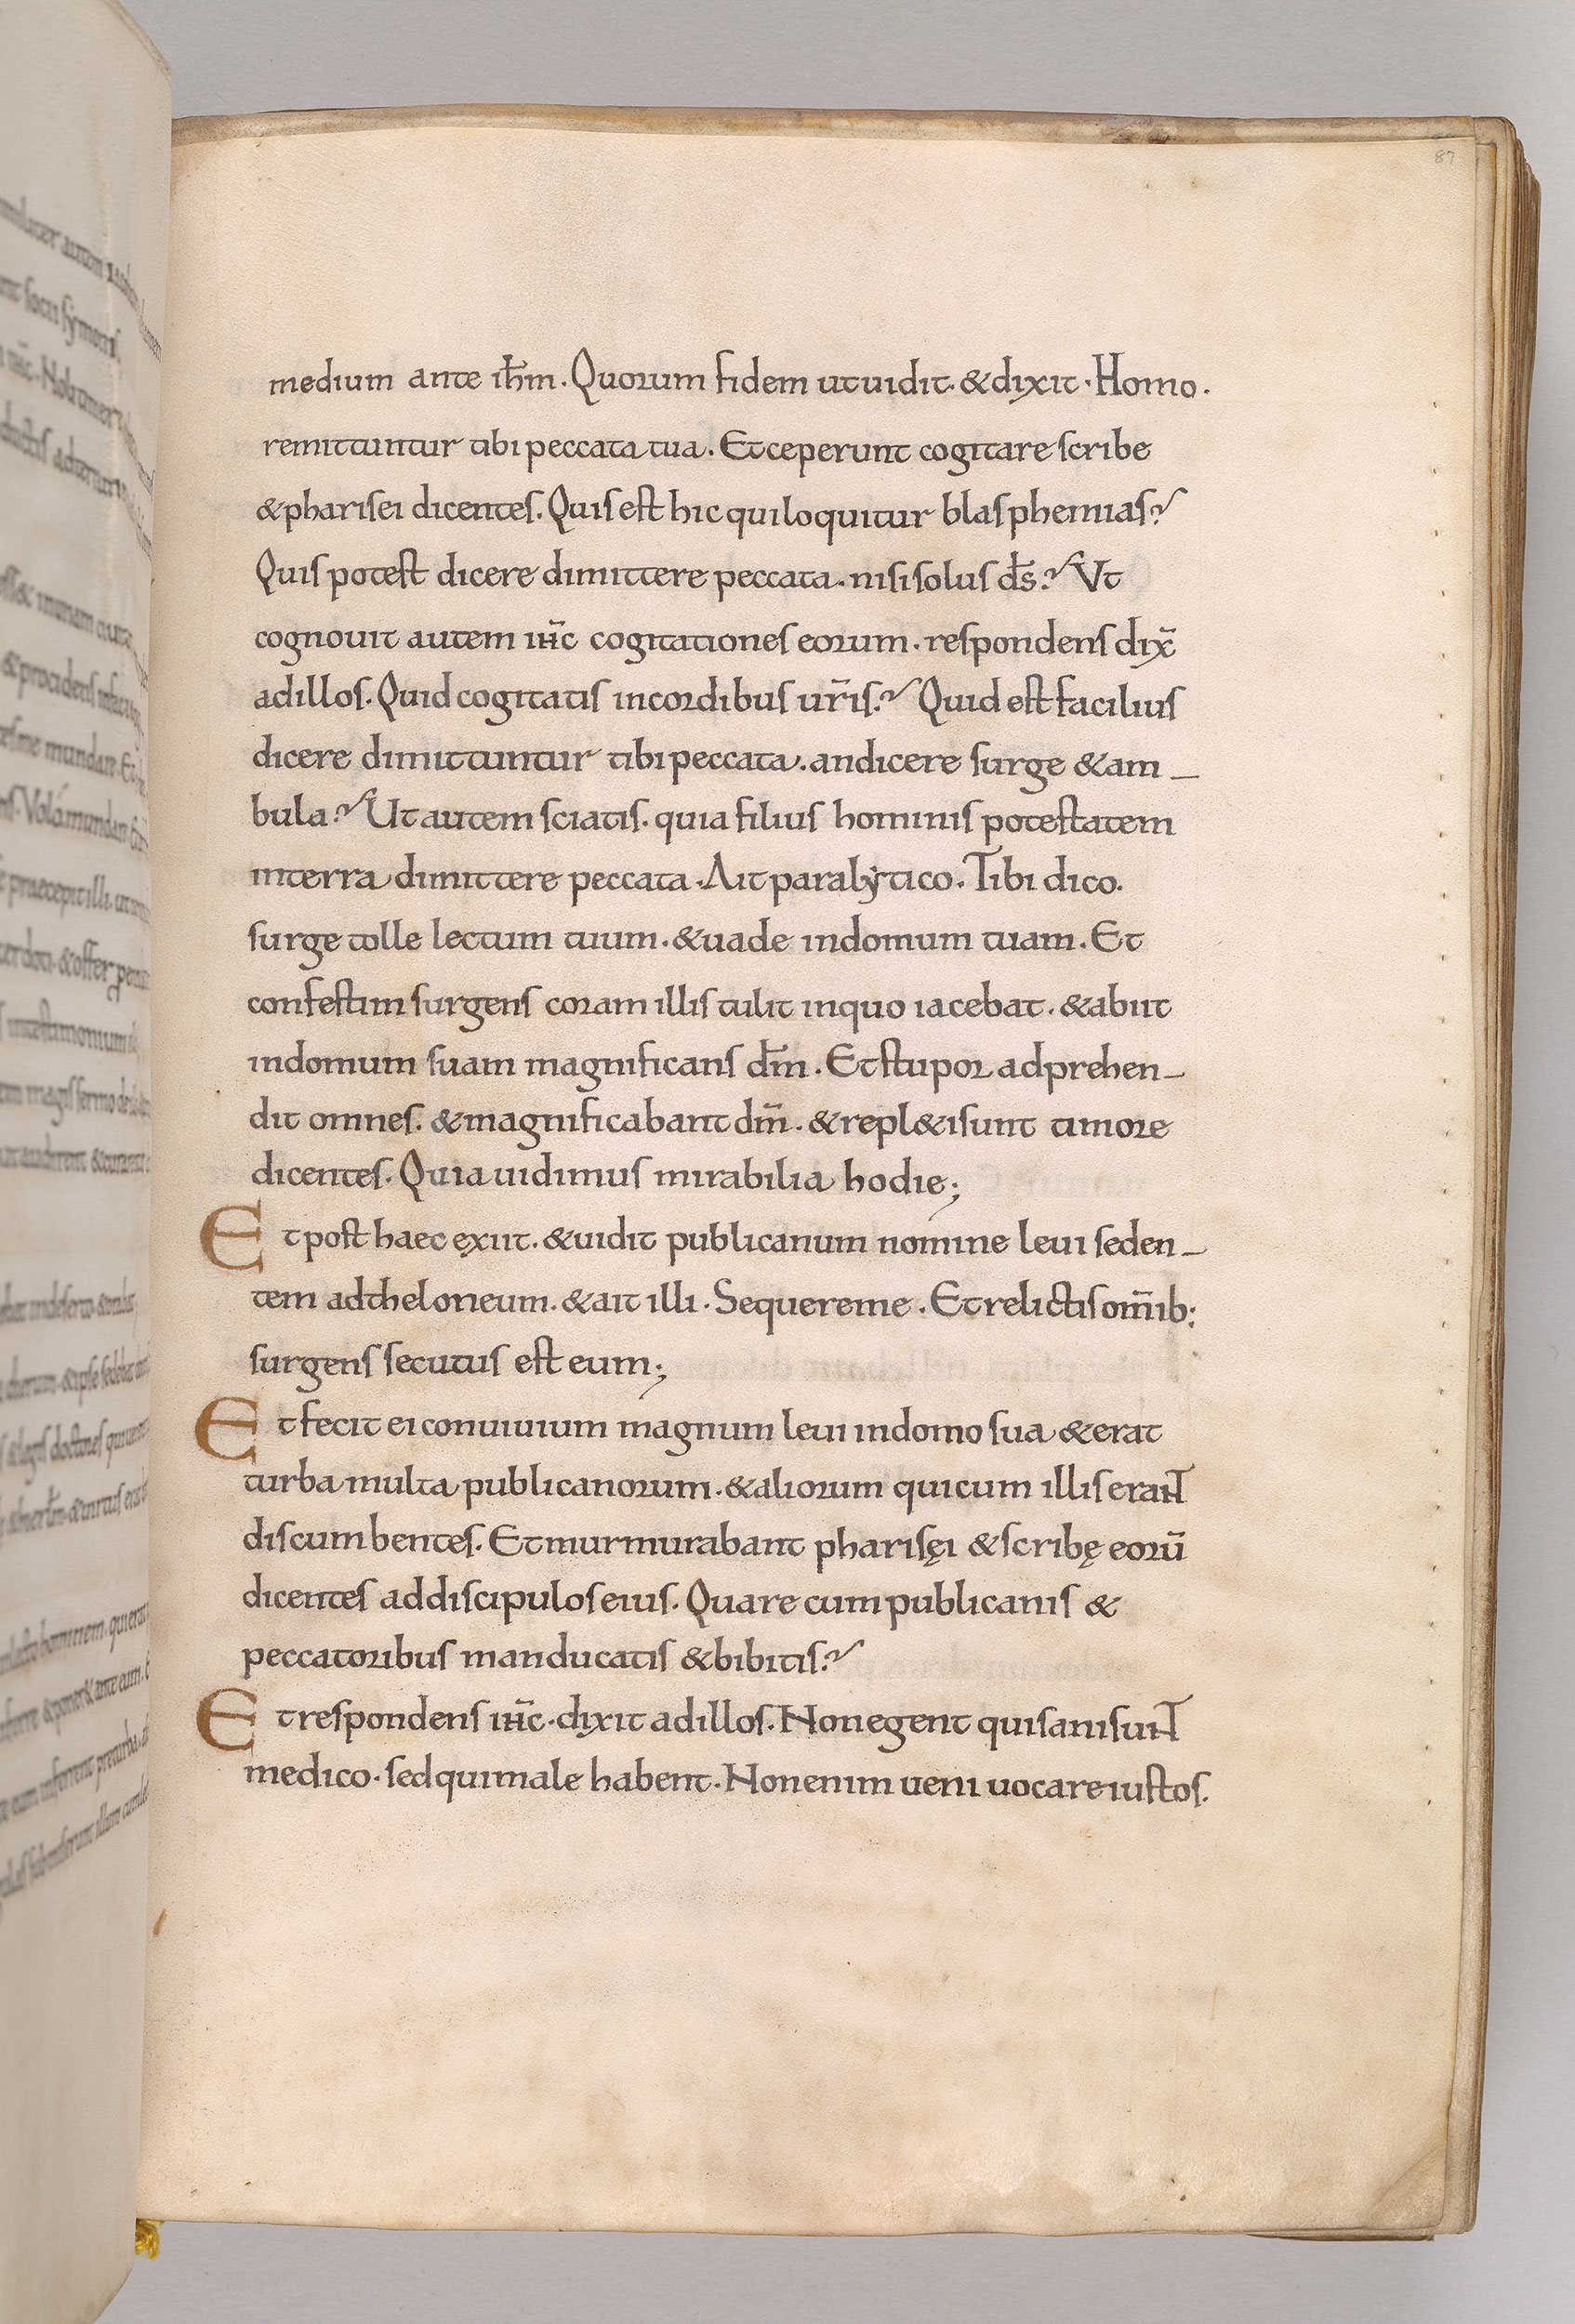 87
medium ante ih̅m. Quorum fidem ut uidit. & dixit. Homo.
remittuntur tibi peccata tua. Et ceperunt cogitare scribe
& pharisei dicentes. Quis est hic qui loquitur blasphemias?
Quis potest dicere dimittere peccata. nisi solus d̅s? Vt
cognouit autem ih̅c cogitationes eorum. respondens dix̅
ad illos. Quid cogitatis in cordibus ur̅is? Quid est facilius
dicere dimittuntur tibi peccata. an dicere surge & am-
bula? Ut autem sciatis. quia filius hominis potestatem
in terra dimittere peccata. Ait paralẏtico. Tibi dico.
surge tolle lectum tuum. & uade in domum tuam. Et
confestim surgens coram illis tulit in quo iacebat. & abiit
in domum suam magnificans d̅m. Et stupor adprehen-
dit omnes. & magnificabant d̅m. & repl&i sunt timore
dicentes. Quia uidimus mirabilia hodie;
Et post haec exiit. & uidit publicanum nomine leui seden-
tem ad theloneum. & ait illi. Sequere me. Et relictis om̅ib;
surgens secutus est eum;
Et fecit ei conuiuium magnum leui in domo sua & erat
turba multa publicanorum. & aliorum qui cum illis erant
discumbentes. Et murmurabant pharisęi & scribę eorū
dicentes ad discipulos eius. Quare cum publicanis &
peccatoribus manducatis & bibitis?
Et respondens ih̅c. dixit ad illos. Non egent qui sani sunt
medico. sed qui male habent. Non enim ueni uocare iustos.